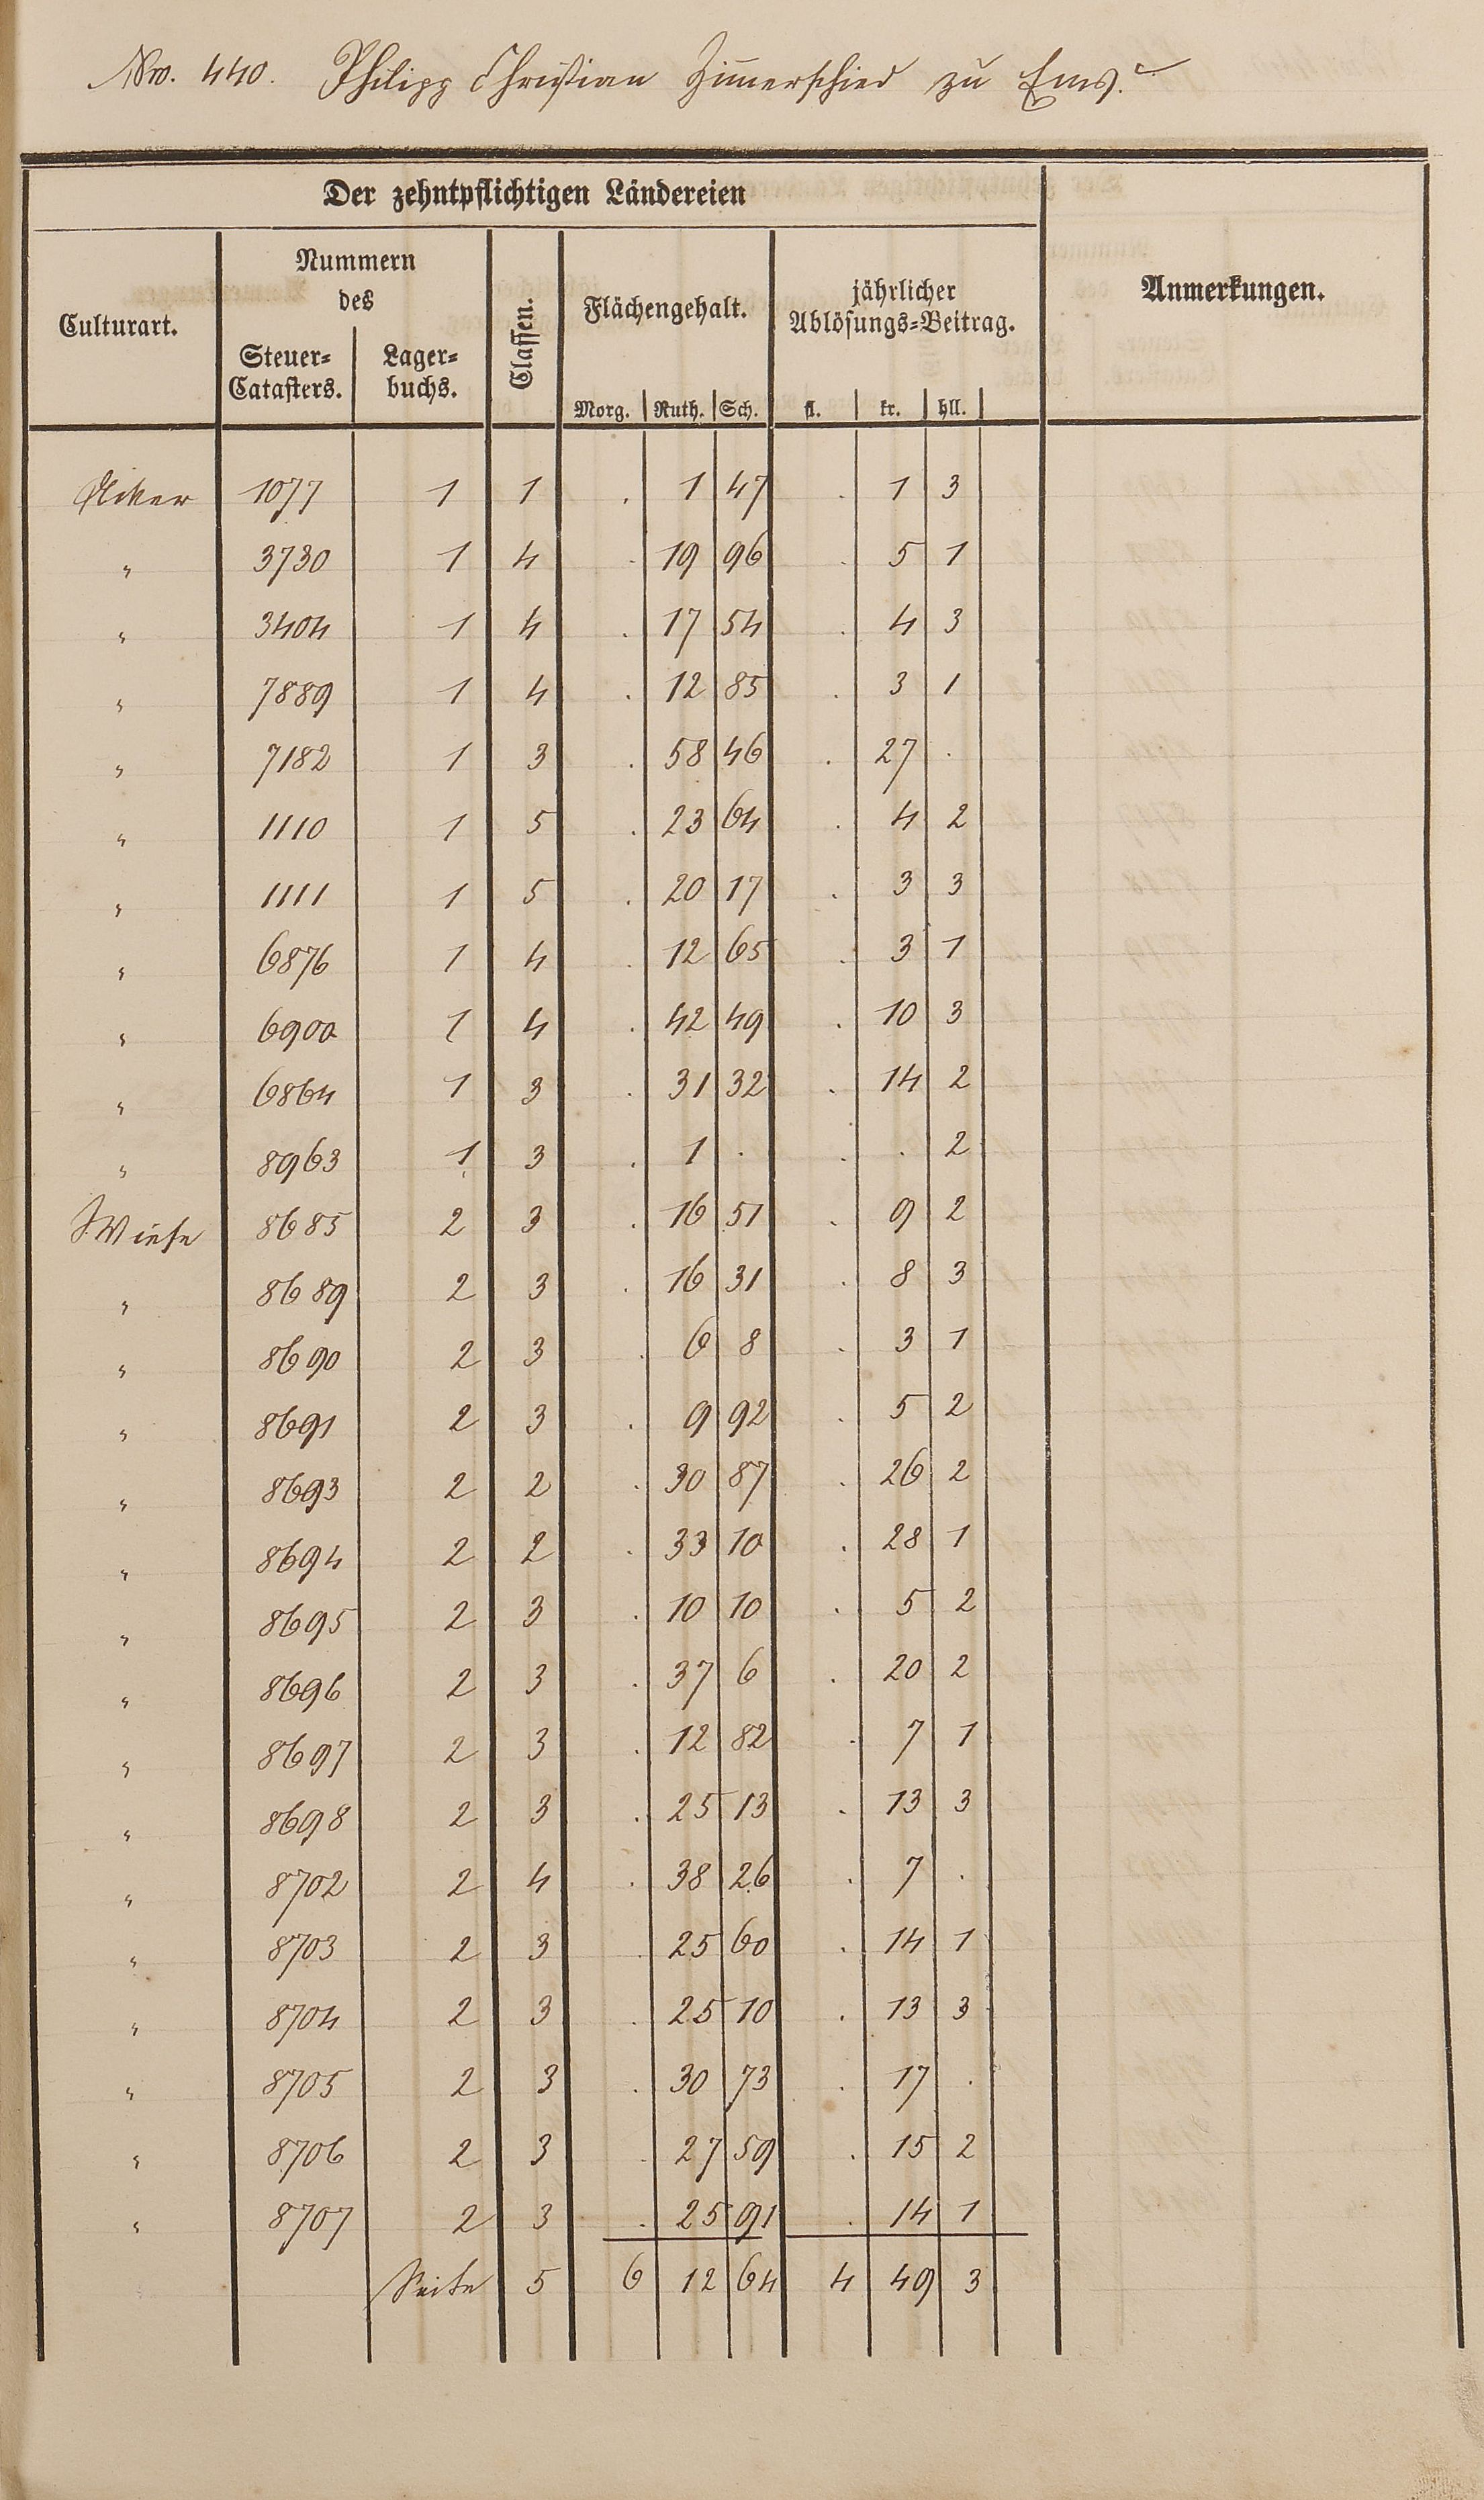 Nro. 440. Philipp Christian Zimerschied zu Ems.
Der zehntpflichtigen Ländereien
Culturart. Nummern des Steuer=Catasters. Lager=buchs. Classen. Flächengehalt. Morg. Ruth. Sch. jährlicher Ablösungs=Beitrag. fl. kr. hll. Anmerkungen.
Acker 1077 1 1 . 1 47 . 1 3
" 3730 1 4 . 19 96 . 5 1
" 3404 1 4 . 17 54 . 4 3
" 7889 1 4 . 12 85 . 3 1
" 7182 1 3 . 58 46 . 27 .
" 1110 1 5 . 23 64 . 4 2
" 1111 1 5 . 20 17 . 3 3
" 6876 1 4 . 12 65 . 3 1
" 6900 1 4 . 42 49 . 10 3
" 6864 1 3 . 31 32 . 14 2
" 8963 1 3 . 1 . . . 2
Wiese 8685 2 3 . 16 51 . 9 2
" 8689 2 3 . 16 31 . 8 3
" 8690 2 3 . 6 8 . 3 1
" 8691 2 3 . 9 92 . 5 2
" 8693 2 2 . 30 87 . 26 2
" 8694 2 2 . 33 10 . 28 1
" 8695 2 3 . 10 10 . 5 2
" 8696 2 3 . 37 6 . 20 2
" 8697 2 3 . 12 82 . 7 1
" 8698 2 3 . 25 13 . 13 3
" 8702 2 4 . 38 26 . 7 .
" 8703 2 3 . 25 60 . 14 1
" 8704 2 3 . 25 10 . 13 3
" 8705 2 3 . 30 73 . 17 .
" 8706 2 3 . 27 59 . 15 2
" 8707 2 3 . 25 91 . 14 1
Seite 5 6 12 64 4 49 3